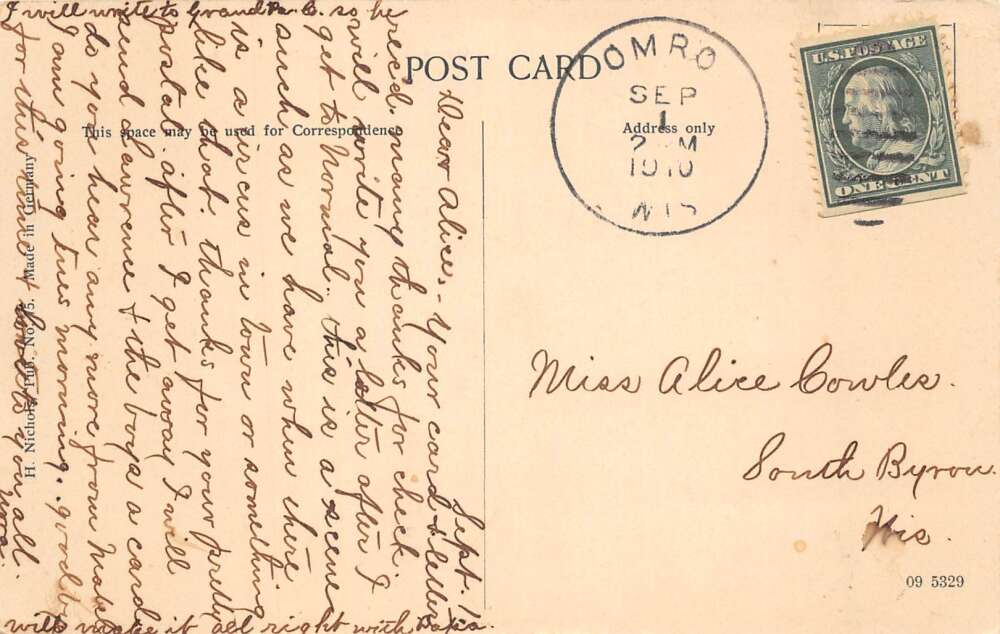 POST CARD
This space may be used for Correspondence
Address only
OMRO
SEP
1
2 M
1910
WIS
U.S. POSTAGE
ONE CENT
Miss Alice Cowles.
South Byron.
Wis.
09 5329
H. Nichols, Pub. No. 15. Made in Germany
Sept. 1
Dear Alice,- Your card & letter
rec'd. many thanks for check
will write you a letter after I
get to Normal. This is a scene
such as we have when there
is a circus in town or something
like that. thanks for your pretty
postal. after I get away I will
send Lawrence & the boys a card
do you hear any more from
I am going this morning.. good by
for this time & love to you all.
Nora.
I will write to Grand Pa C. so he
will it all right with